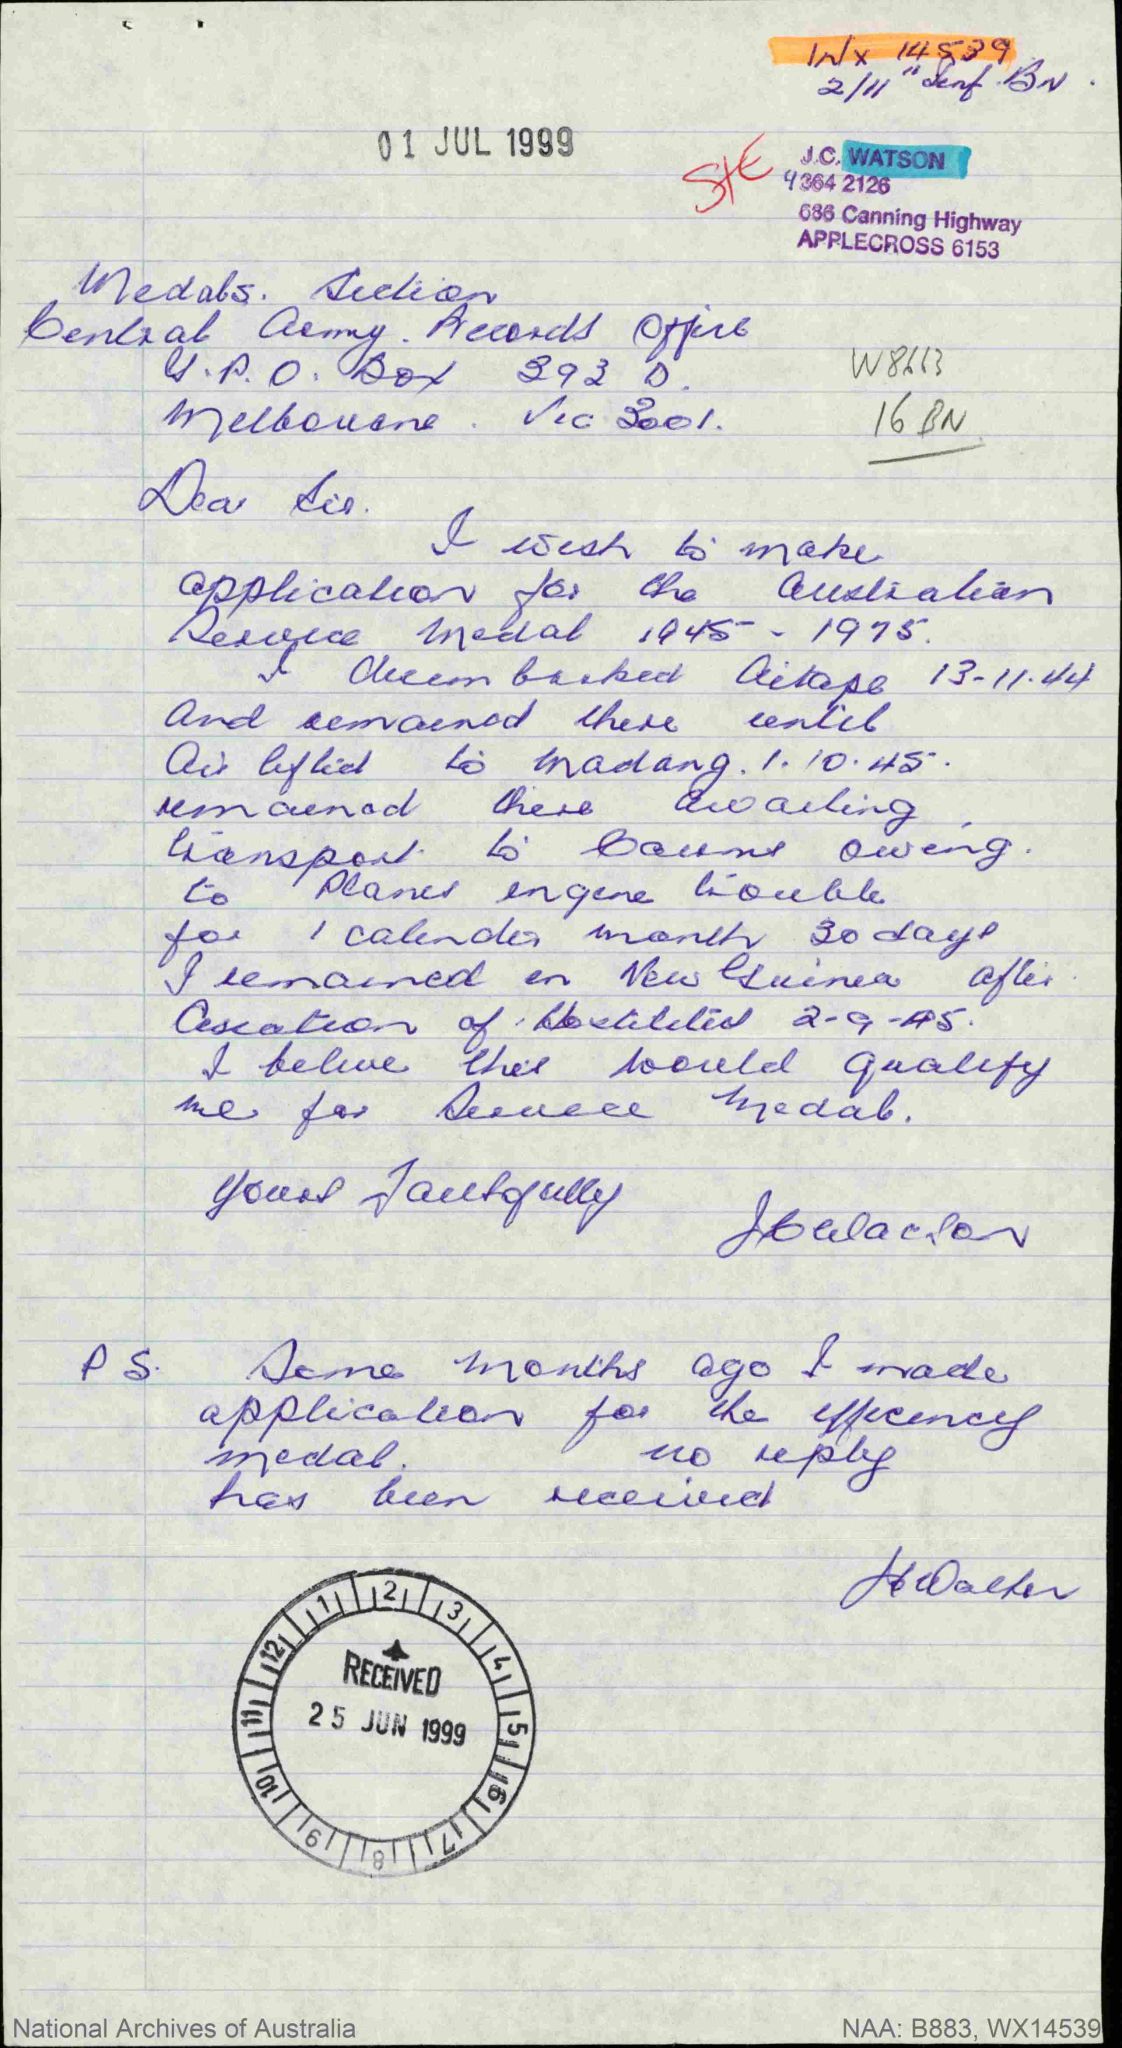 WX 14539
2/11" Inf. BN.
01 JUL 1999
J.C. WATSON
9364 2126
686 Canning Highway
APPLECROSS 6153
Medals. Section
Central Army. Records Office
G.P.O. Box 393 D.
Melbourne. Vic 3001.
W8663
16 BN
Dear Sir.
I wish to make
application for the Australian
Service Medal 1945 - 1975.
I disembarked Aitape 13-11-44
and remained there until
Air lifted to Madang. 1.10.45.
remained there awaiting
transport to Cairns owing.
to Planes engine trouble
for 1 calender month 30 days
I remained in New Guinea after
Cessation of Hostilities 2-9-45.
I belive this would qualify
me for Service Medal.
Yours Faithfully
JCWatson
PS. Some months ago I made
application for the efficency
medal. no reply
has been received
JCWatson
12 1 2 3 4 5 6 7 8 9 10 11
RECEIVED
25 JUN 1999
National Archives of Australia
NAA: B883, WX14539